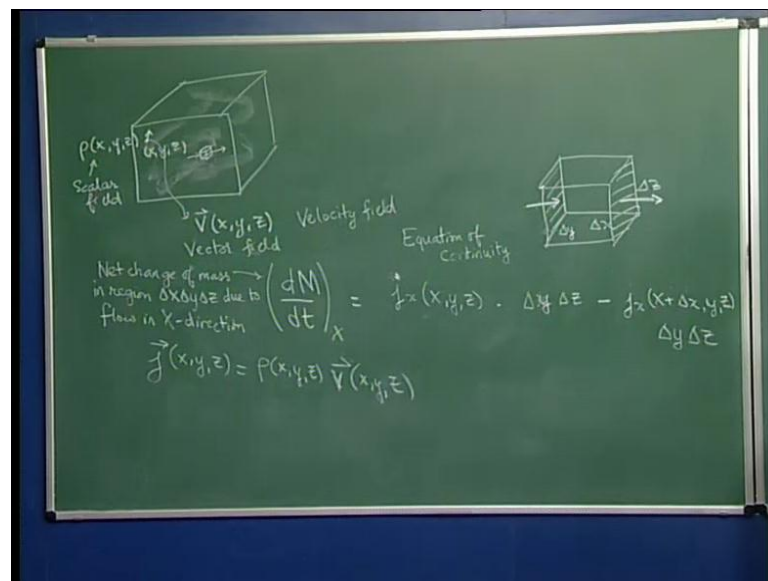 ρ(x,y,z)
(x,y,z)
Scalar
field
V⃗(x,y,z) Velocity field
Vector field
Δz
Δy Δx
Equation of
Continuity
Net change of mass
in region ΔxΔyΔz due to
flow in X-direction
(dM/dt)_X = j_x(x,y,z) · Δy Δz − j_x(x+Δx,y,z)
Δy Δz
j⃗(x,y,z) = ρ(x,y,z) V⃗(x,y,z)